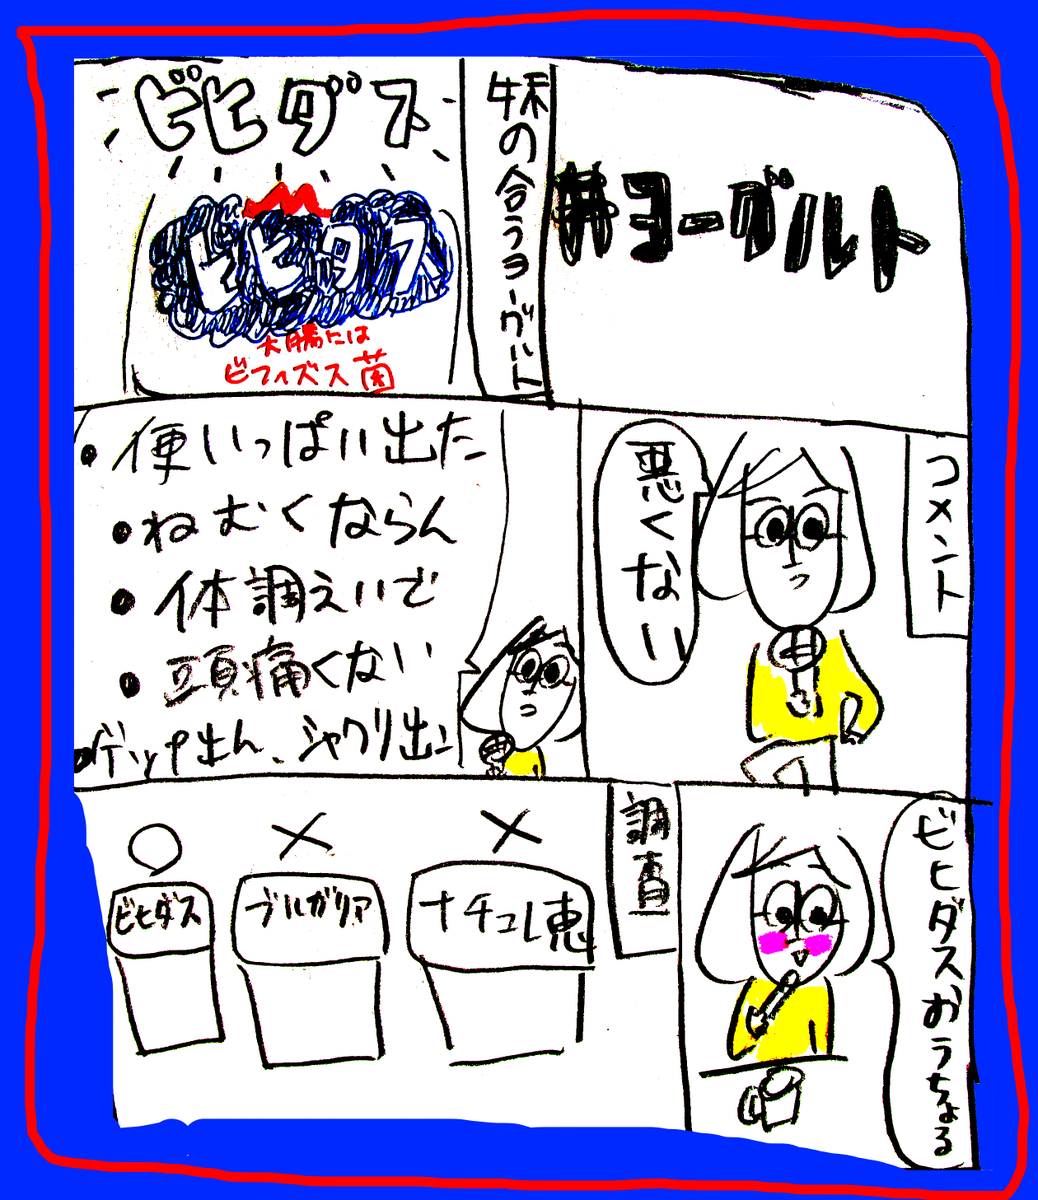 #ヨーグルト
株の合うヨーグルト
ビヒダス
ビヒダス
大腸には
ビフィズス菌
コメント
悪くない
・便いっぱい出た
・ねむくならん
・体調えいで
・頭痛くない
・ゲップ出ん、シャクリ出ン
ビヒダスおうちょる
調査
×
ナチュレ恵
×
ブルガリア
○
ビヒダス